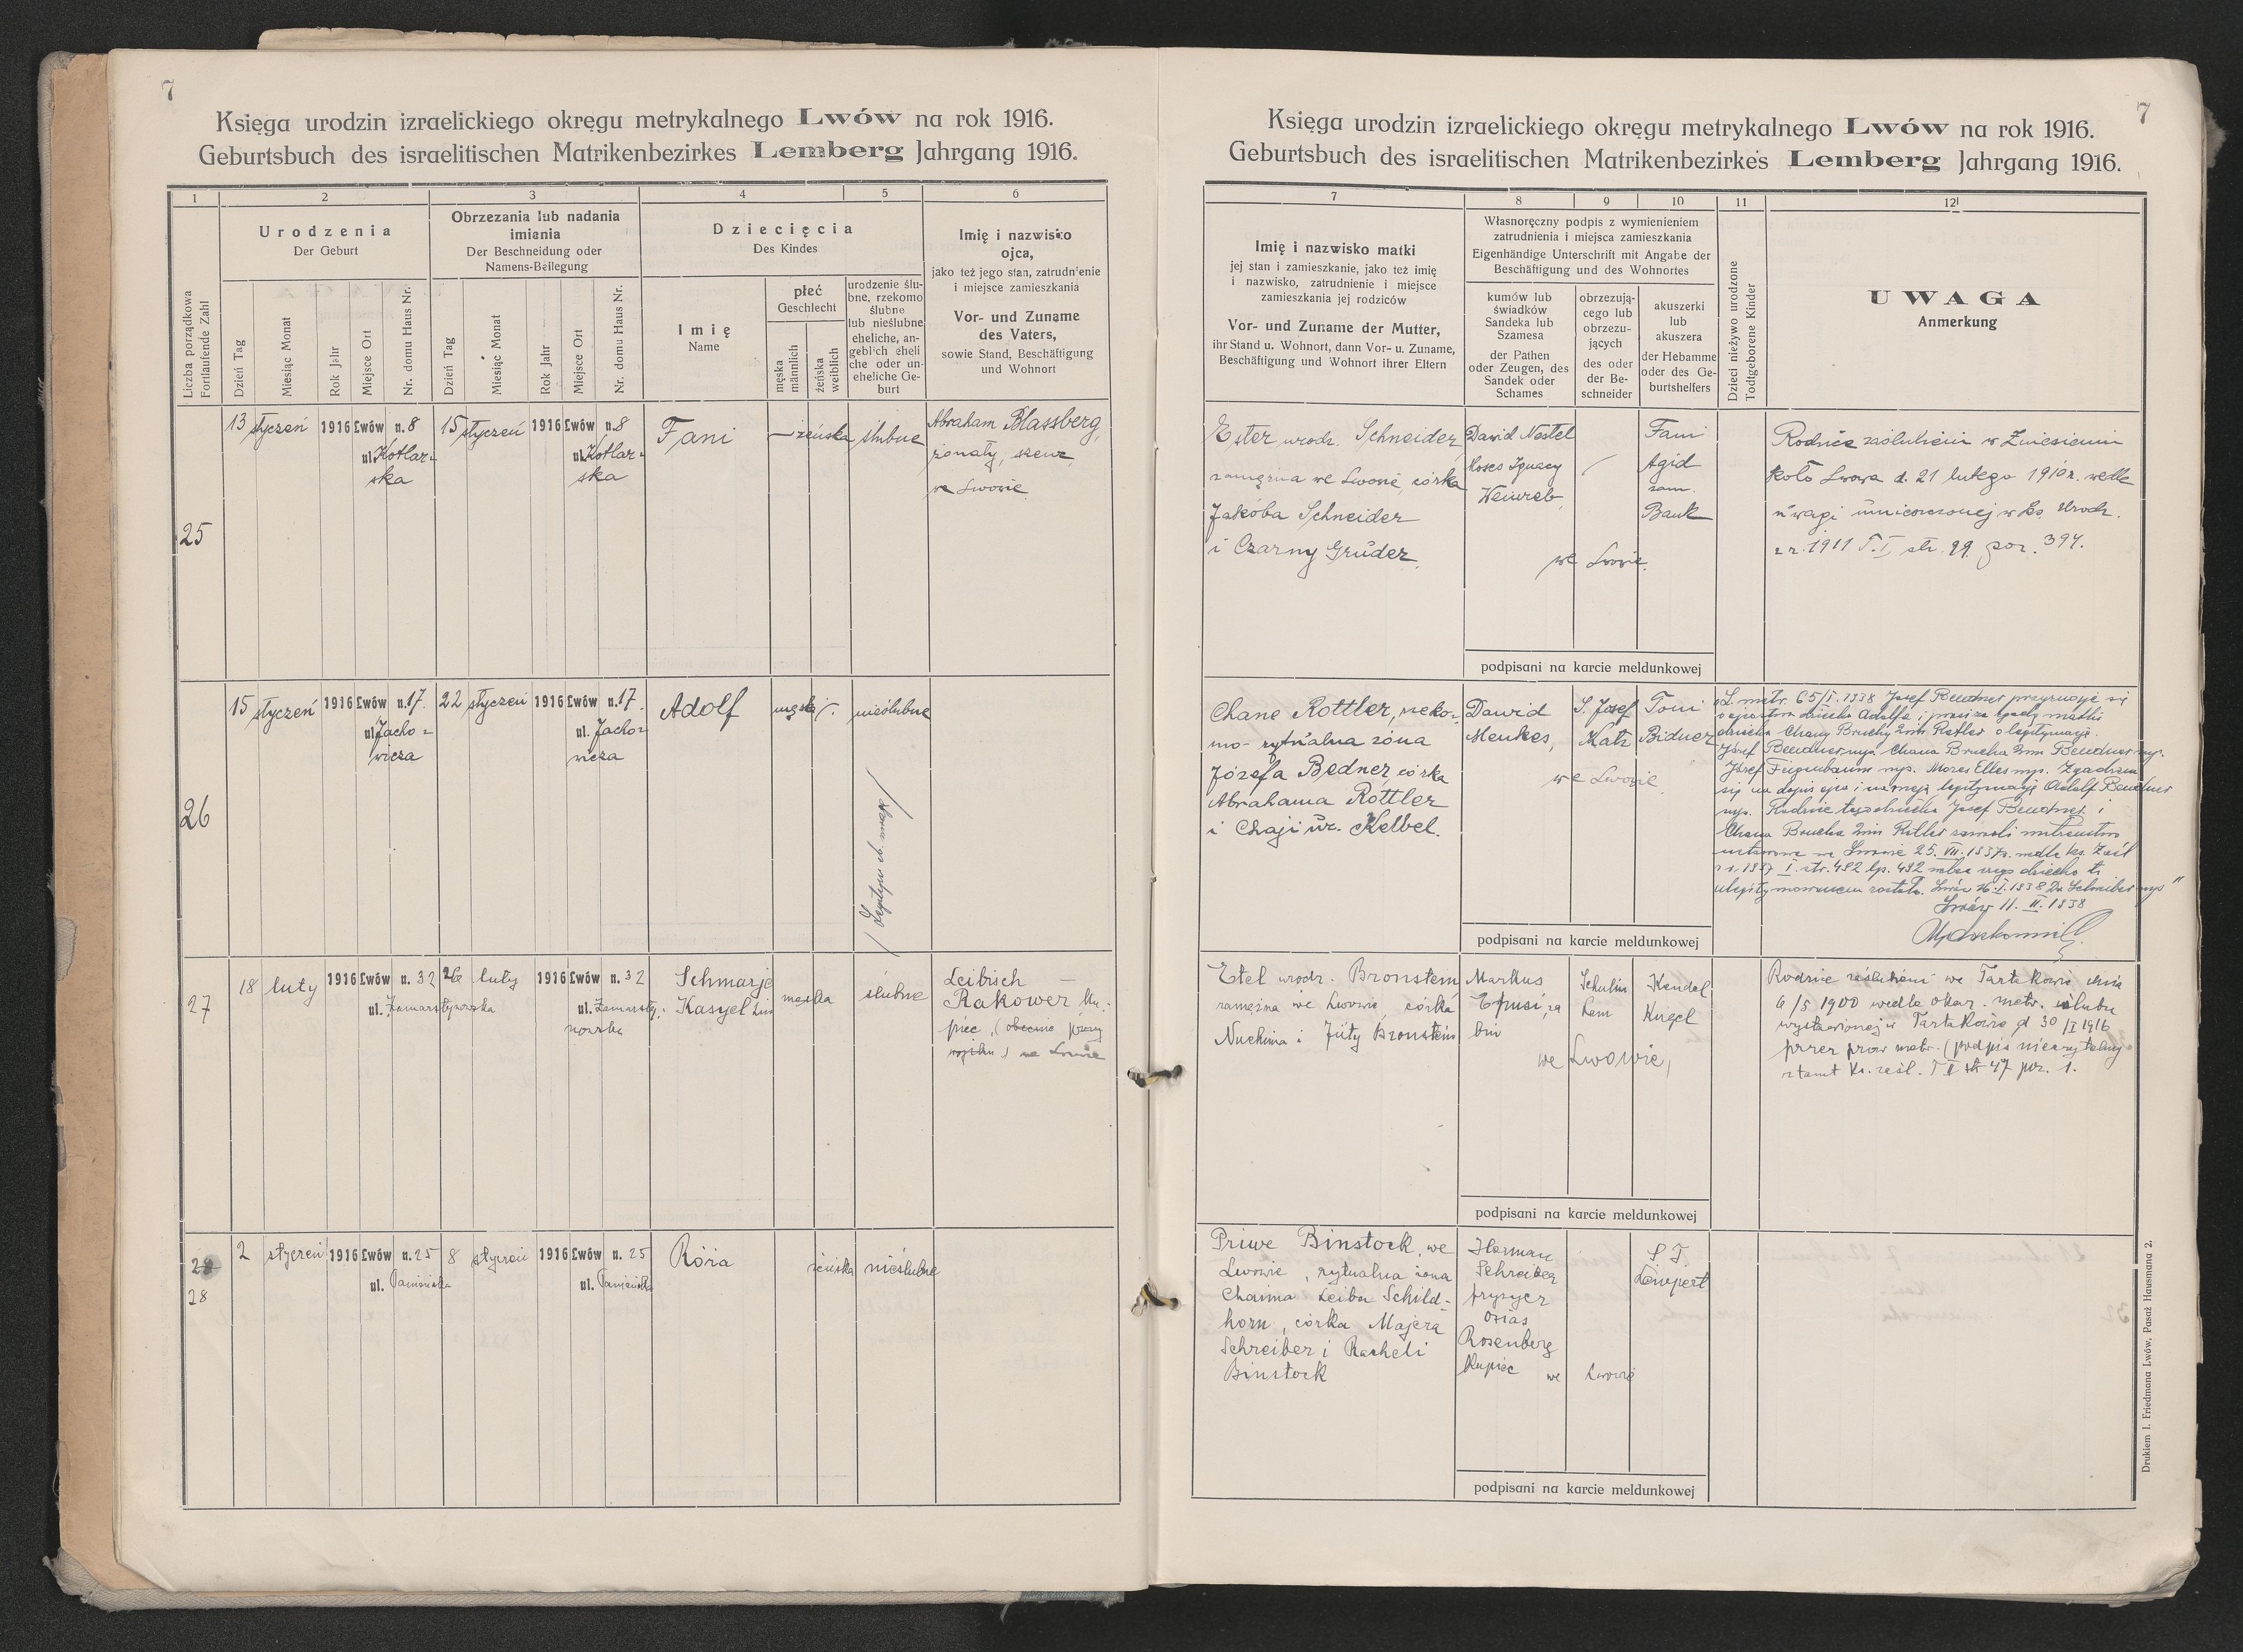 7
Księga urodzin izraelickiego okręgu metrykalnego Lwów na rok 1916.
Geburtsbuch des israelitischen Matrikenbezirkes Lemberg Jahrgang 1916.
1 2 3 4 5 6
Liczba porządkowa
Fortlaufende Zahl
Urodzenia
Der Geburt
Dzień Tag
Miesiąc Monat
Rok Jahr
Miejsce Ort
Nr. domu Haus Nr.
Obrzezania lub nadania
imienia
Der Beschneidung oder
Namens-Beilegung
Dzień Tag
Miesiąc Monat
Rok Jahr
Miejsce Ort
Nr. domu Haus Nr.
Dziecięcia
Des Kindes
Imię
Name
płeć
Geschlecht
męska
männlich
żeńska
weiblich
urodzenie ślu-
bne, rzekomo
ślubne
lub nieślubne
eheliche, an-
geblich eheli
che oder un-
eheliche Ge-
burt
Imię i nazwisko
ojca,
jako też jego stan, zatrudnienie
i miejsce zamieszkania
Vor- und Zuname
des Vaters,
sowie Stand, Beschäftigung
und Wohnort
25
13 styczeń 1916 Lwów n. 8
ul. Kotlar-
ska
15 styczeń 1916 Lwów n. 8
ul. Kotlar-
ska
Fani
— żeńska
ślubne
Abraham Blassberg,
żonaty, szewc
we Lwowie
26
15 styczeń 1916 Lwów n. 17.
ul. Jacho-
wicza
22 styczeń 1916 Lwów n. 17.
ul. Jacho-
wicza
Adolf
męska
nieślubne
27
18 luty 1916 Lwów n. 32
ul. Zamarstynowska
26 luty 1916 Lwów n. 32
ul. Zamarsty-
nowska
Schmarje
Kasyel
męska
ślubne
Leibisch
Rakower Ku-
piec, (obecnie przy
wojsku) we Lwowie
28
28
2 styczeń 1916 Lwów n. 25
ul. Panieńska
8 styczeń 1916 Lwów n. 25
ul. Panieńska
Róża
żeńska
nieślubne
7
Księga urodzin izraelickiego okręgu metrykalnego Lwów na rok 1916.
Geburtsbuch des israelitischen Matrikenbezirkes Lemberg Jahrgang 1916.
7 8 9 10 11 12
Imię i nazwisko matki
jej stan i zamieszkanie, jako też imię
i nazwisko, zatrudnienie i miejsce
zamieszkania jej rodziców
Vor- und Zuname der Mutter,
ihr Stand u. Wohnort, dann Vor- u. Zuname,
Beschäftigung und Wohnort ihrer Eltern
Własnoręczny podpis z wymienieniem
zatrudnienia i miejsca zamieszkania
Eigenhändige Unterschrift mit Angabe der
Beschäftigung und des Wohnortes
kumów lub
świadków
Sandeka lub
Szamesa
der Pathen
oder Zeugen, des
Sandek oder
Schames
obrzezują-
cego lub
obrzezu-
jących
des oder
der Be-
schneider
akuszerki
lub
akuszera
der Hebamme
oder des Ge-
burtshelfers
Dzieci nieżywo urodzone
Todtgeborene Kinder
UWAGA
Anmerkung
Ester urodz. Schneider,
zamężna we Lwowie, córka
Jakóba Schneider
i Czarny Grüder
Dawid Nestel
Moses Ignacy
Weinreb,
Fani
Agid
zam.
Bauk
we Lwowie.
podpisani na karcie meldunkowej
Rodzice zaślubieni w Zniesieniu
koło Lwowa d. 21 lutego 1910 r. wedle
uwagi umieszczonej w ks. urodz.
z r. 1911 T. I str. 99 poz. 394.
Chane Rottler, rzeko-
mo- rytualna żona
Józefa Bedner, córka
Abrahama Rottler
i Chaji ur. Kelbel.
Dawid
Menkes,
S. Josef
Katz
Toni
Bidner
we Lwowie
podpisani na karcie meldunkowej
L. metr. 65/I. 1938 Josef Bendner przyznaje się
do ojcostwa dziecka Adolfa i prosi za zgodą matki
dziecka Chany Bruchy 2im Rotler o legitymację.
Józef Bendner mp. Chana Brucha 2im Bendner mp.
Józef Feigenbaum mp. Mozes Elles mp. Zgadzam
się na dopis ojca i na moją legitymację Adolf Bendner
mp. Rodzice tego dziecka Josef Bendner i
Chana Brucha 2im Rotler zawarli małżeństwo
we Lwowie 25. VII. 1937 r. wedle ks. zaśl
z r. 1937 I. str. 492 lp. 492 wobec czego dziecko to
legitymowanem zostało. Lwów 26. I. 1938 Dr Schreiber mp"
Lwów 11. II. 1938
Estel urodz. Bronstein
zamężna we Lwowie, córka
Nuchima i Jüty Bronstein
Markus
Epusi, ra
bin
Schulim
Lam
Kendel
Kugel
we Lwowie,
podpisani na karcie meldunkowej
Rodzice zaślubieni we Tartakowie dnia
6/5 1900 wedle okaz. metr. ślubu
wystawionej w Tartakowie d 30/I 1916
przez prow metr. (podpis nieczytelny
z tamt ks. zaśl. T I str 47 poz. 1.
Priwe Binstock, we
Lwowie, rytualna żona
Chaima Leiba Schild-
horn, córka Majera
Schreiber i Racheli
Binstock
Herman
Schreiber
fryzyer
Ozias
Rosenberg
Kupiec we Lwowie
S. J.
Lewpert
podpisani na karcie meldunkowej
Drukiem I. Friedmana Lwów, Pasaż Hausmana 2.